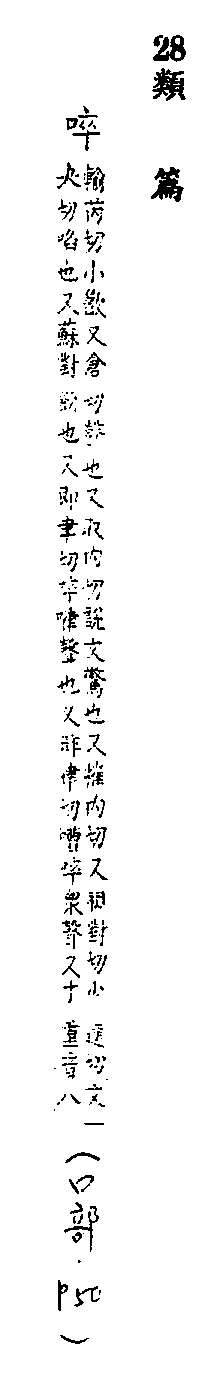 28 類 篇
啐
輸芮切小歠又倉
夬切啗也又蘇對
切也又取内切說文驚也又摧内切又祖對切小
歠也又即聿切啐聲也又昨律切嘈啐衆聲又
切文一
重音八
(口部·P50)